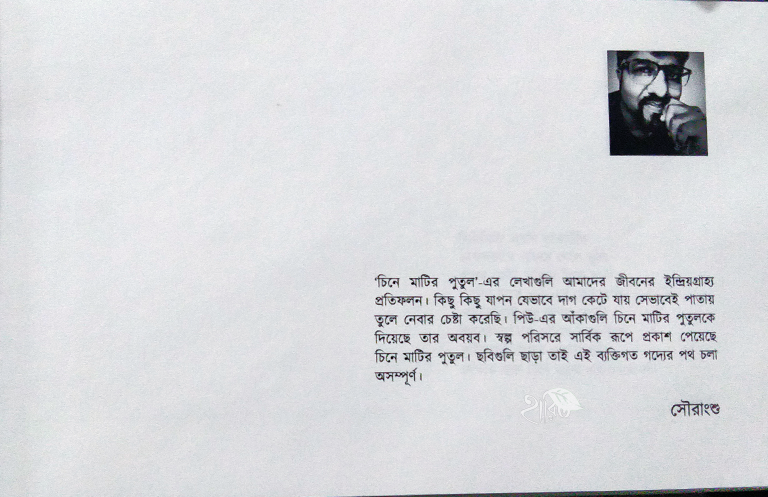 'চিনে মাটির পুতুল'-এর লেখাগুলি আমাদের জীবনের ইন্দ্রিয়গ্রাহ্য
প্রতিফলন। কিছু কিছু যাপন যেভাবে দাগ কেটে যায় সেভাবেই পাতায়
তুলে নেবার চেষ্টা করেছি। পিউ-এর আঁকাগুলি চিনে মাটির পুতুলকে
দিয়েছে তার অবয়ব। স্বল্প পরিসরে সার্বিক রূপে প্রকাশ পেয়েছে
চিনে মাটির পুতুল। ছবিগুলি ছাড়া তাই এই ব্যক্তিগত গদ্যের পথ চলা
অসম্পূর্ণ।
সৌরাংশু